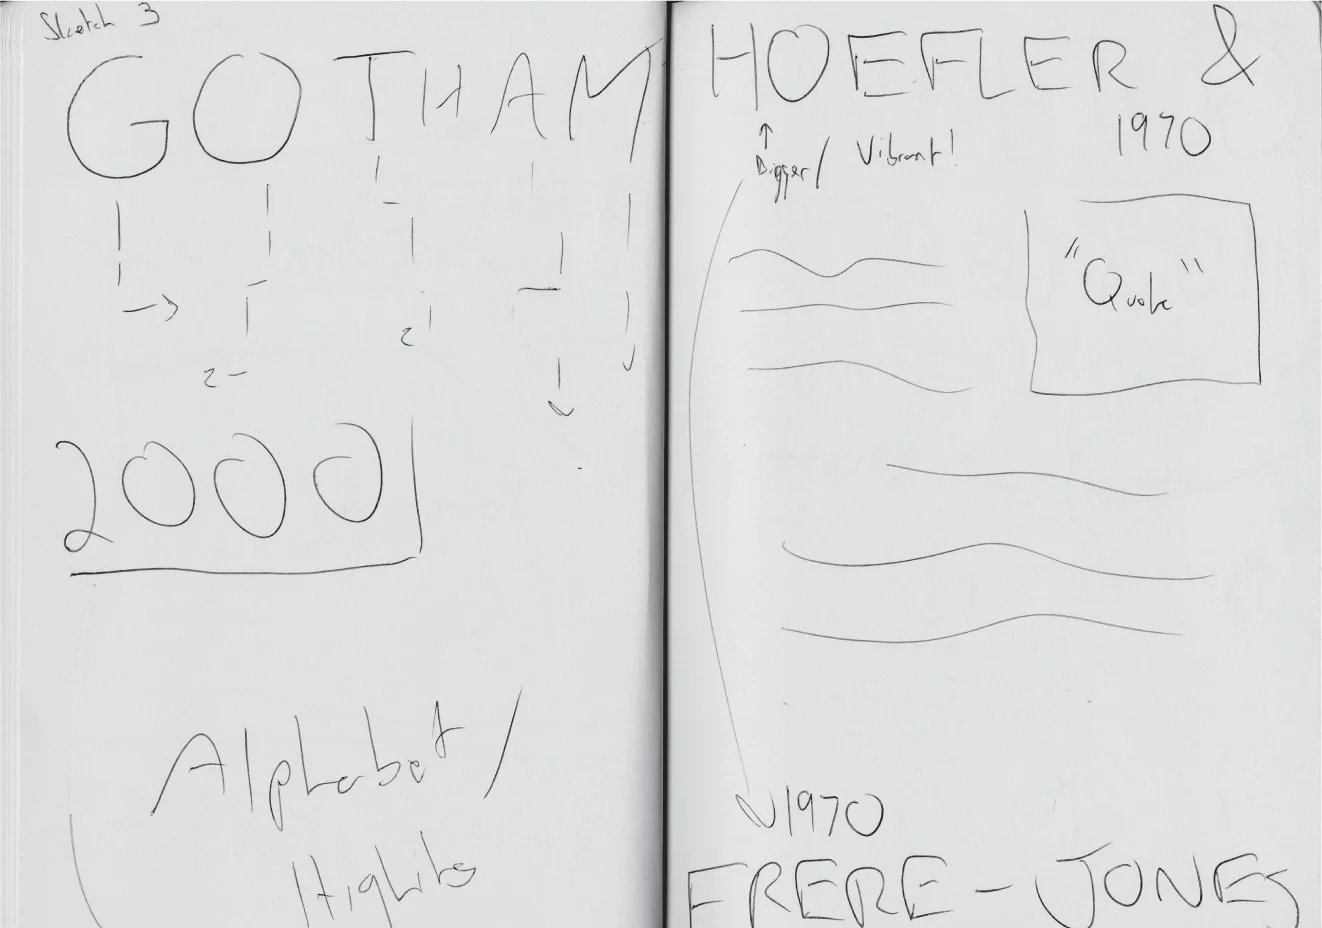 Sketch 3
GOTHAM
2000
Alphabet /
HOEFLER &
1970
Bigger / Vibrant!
"Quote"
1970
FRERE - JONES